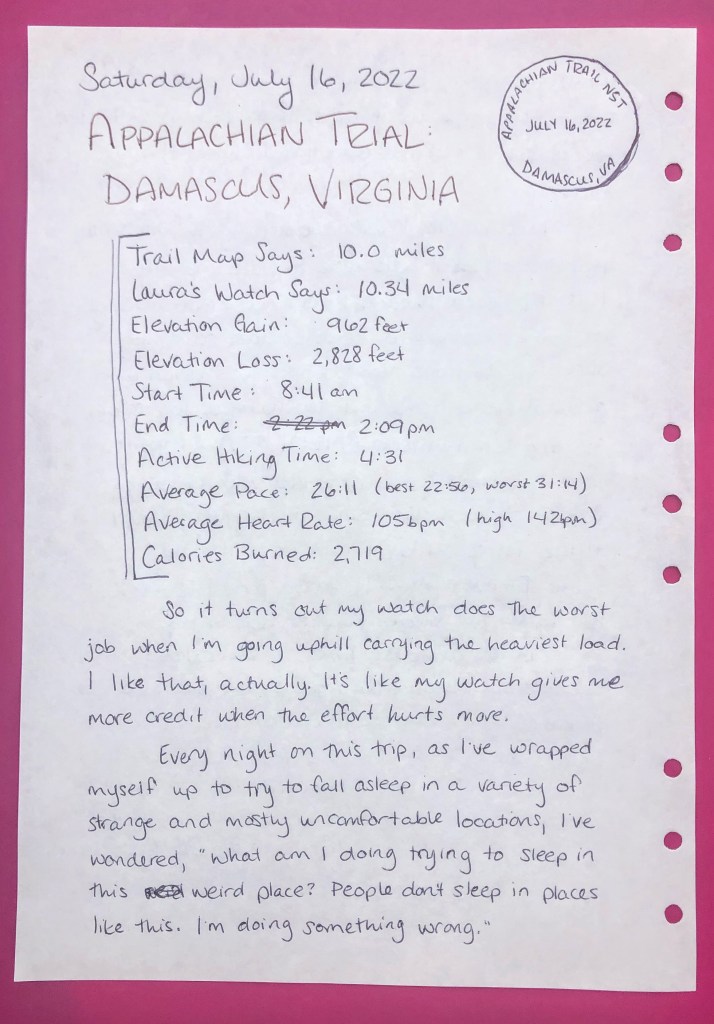 Saturday, July 16, 2022
APPALACHIAN TRAIL NST
JULY 16, 2022
DAMASCUS, VA
APPALACHIAN TRIAL:
DAMASCUS, VIRGINIA
Trail Map Says: 10.0 miles
Laura's Watch Says: 10.34 miles
Elevation Gain: 962 feet
Elevation Loss: 2,828 feet
Start Time: 8:41 am
End Time: 2:22 pm 2:09pm
Active Hiking Time: 4:31
Average Pace: 26:11 (best 22:56, worst 31:14)
Average Heart Rate: 105bpm (high 142bpm)
Calories Burned: 2,719
So it turns out my watch does the worst
job when I'm going uphill carrying the heaviest load.
I like that, actually. It's like my watch gives me
more credit when the effort hurts more.
Every night on this trip, as I've wrapped
myself up to try to fall asleep in a variety of
strange and mostly uncomfortable locations, I've
wondered, "What am I doing trying to sleep in
this weird place? People don't sleep in places
like this. I'm doing something wrong."